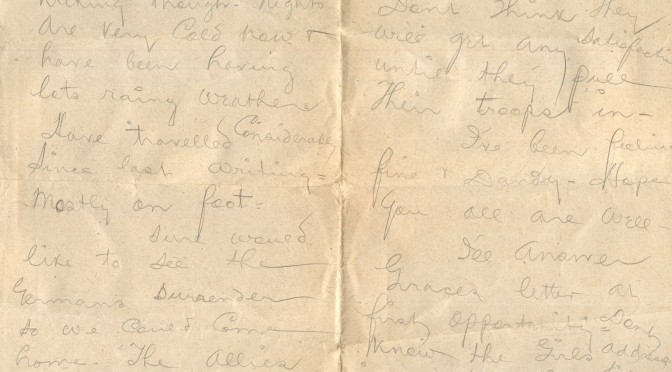 Kicking though - Nights
Are very Cold now &
have been having
lots rainy weather
Have travelled Considerable
Since last writing -
Mostly on foot -
Sure would
like to see the
Germans Surrender
so we could Come
home - The Allies
Dont Think They
will get any Satisfaction
until they pull
Their troops in -
I've been feeling
fine & Dandy - Hope
You all are well -
I'll Answer
Graces letter at
first opportunity - Dont
Know the Girls address